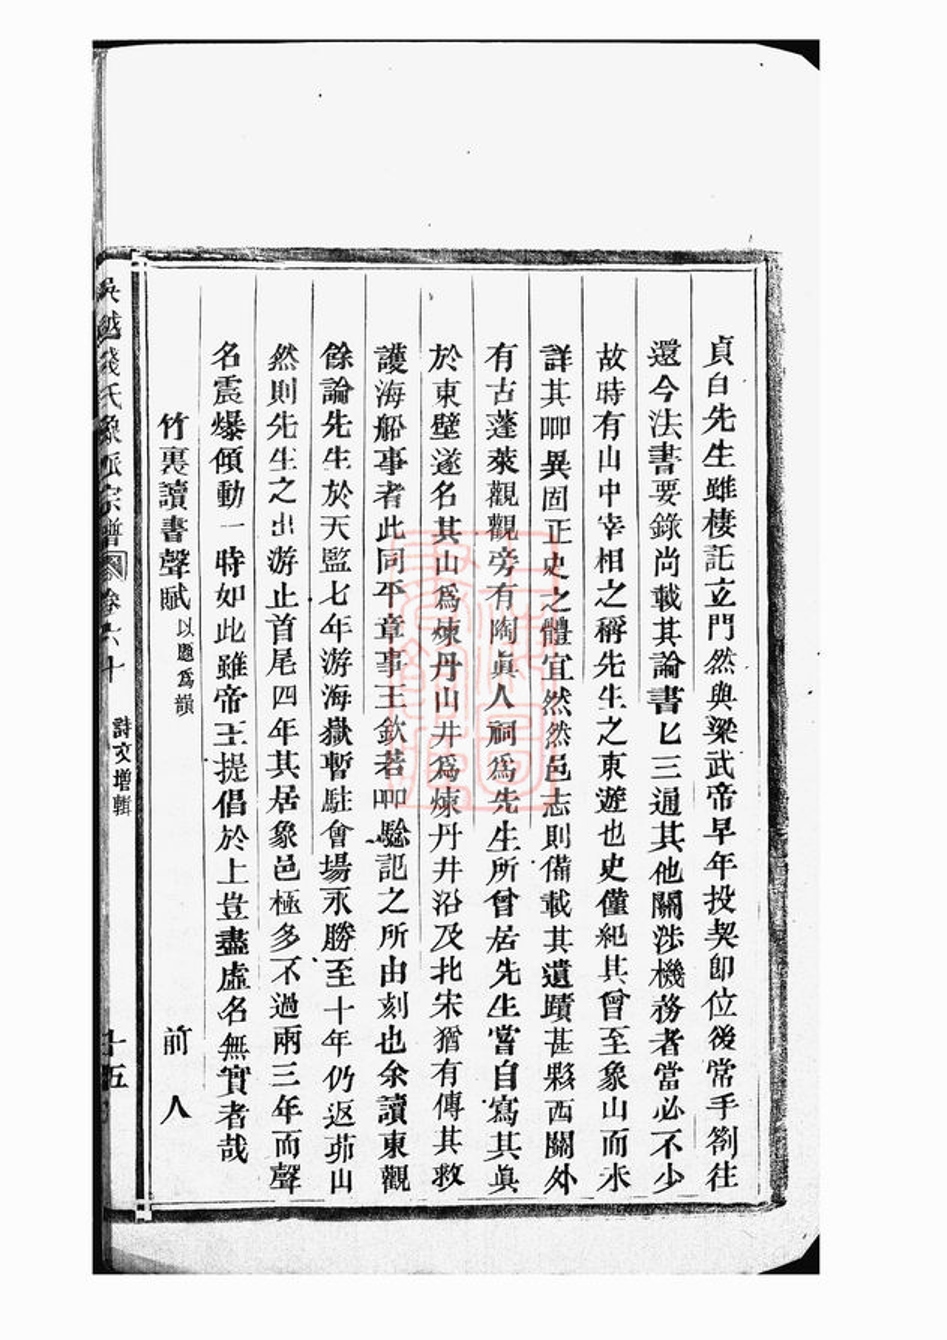 貞白先生雖棲託立門然與梁武帝早年投契卽位後常手劄往
還今法書要錄尚載其論書匕三通其他關涉機務者當必不少
故時有山中宰相之稱先生之東遊也史僅紀其曾至象山而未
詳其叩異固正史之體宜然然邑志則備載其遺蹟甚夥西關外
有古蓬萊觀觀旁有陶眞人祠爲先生所曾居先生嘗自寫其眞
於東壁遂名其山爲煉丹山井爲煉丹井沿及北宋猶有傳其救
護海船事者此同平章事王欽若叩騐記之所由刻也余讀東觀
餘論先生於天監七年游海嶽暫駐會塲永勝至十年仍返茆山
然則先生之出游止首尾四年其居象邑極多不過兩三年而聲
名震爆傾動一時如此雖帝王提倡於上豈盡虛名無實者哉
竹裏讀書聲賦以題爲韻 前人
吳越錢氏象派宗譜 卷六十 詩文增輯 十五